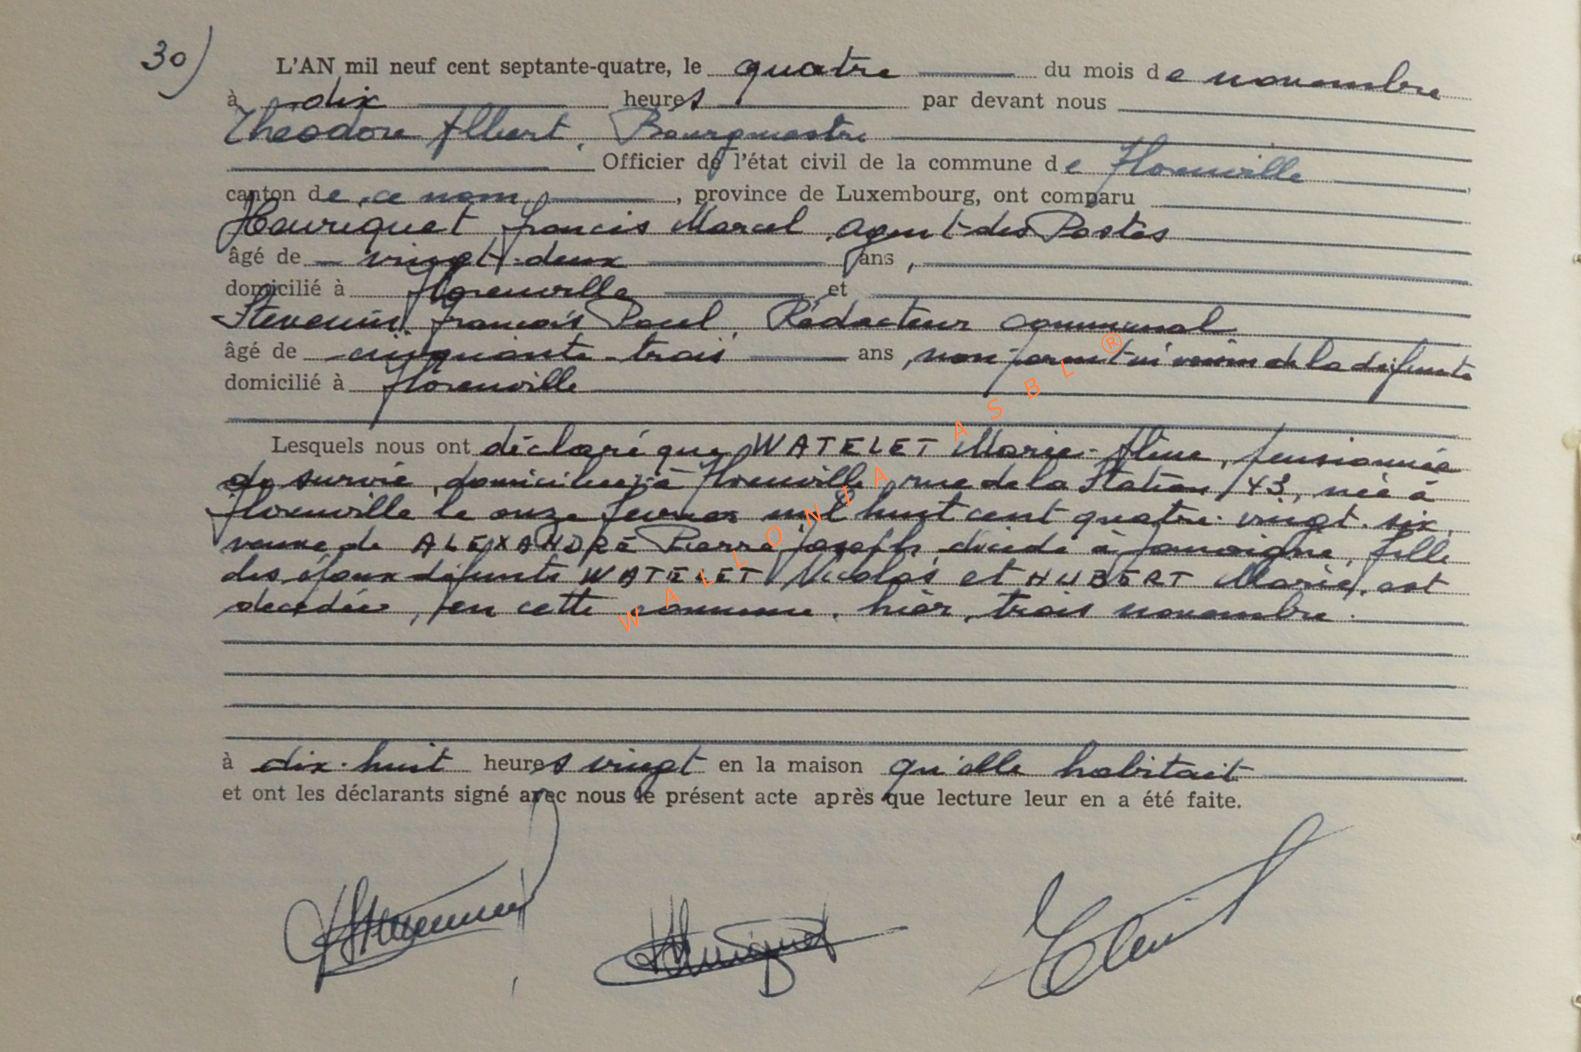 30)
L'AN mil neuf cent septante-quatre, le quatre du mois de novembre
à dix heures par devant nous
Théodore Albert, Bourgmestre
Officier de l'état civil de la commune de Florenville
canton de ce nom, province de Luxembourg, ont comparu
Henriquet Francis Marcel, agent des Postes
âgé de vingt-deux ans,
domicilié à Florenville et
Stevenin François Paul, Rédacteur communal
âgé de cinquante-trois ans, non parent ni voisin de la défunte
domicilié à Florenville
Lesquels nous ont déclaré que WATELET Marie-Aline, pensionnée
de survie, domiciliée à Florenville, rue de la Station, 43, née à
Florenville le onze février mil huit cent quatre-vingt-six,
veuve de ALEXANDRE Pierre Joseph, décédé à Jamoigne, fille
des époux défunts WATELET Nicolas et HUBERT Marie, est
décédée, en cette commune, hier, trois novembre.
à dix-huit heures vingt en la maison qu'elle habitait
et ont les déclarants signé avec nous le présent acte après que lecture leur en a été faite.
WALLONIA ASBL ®